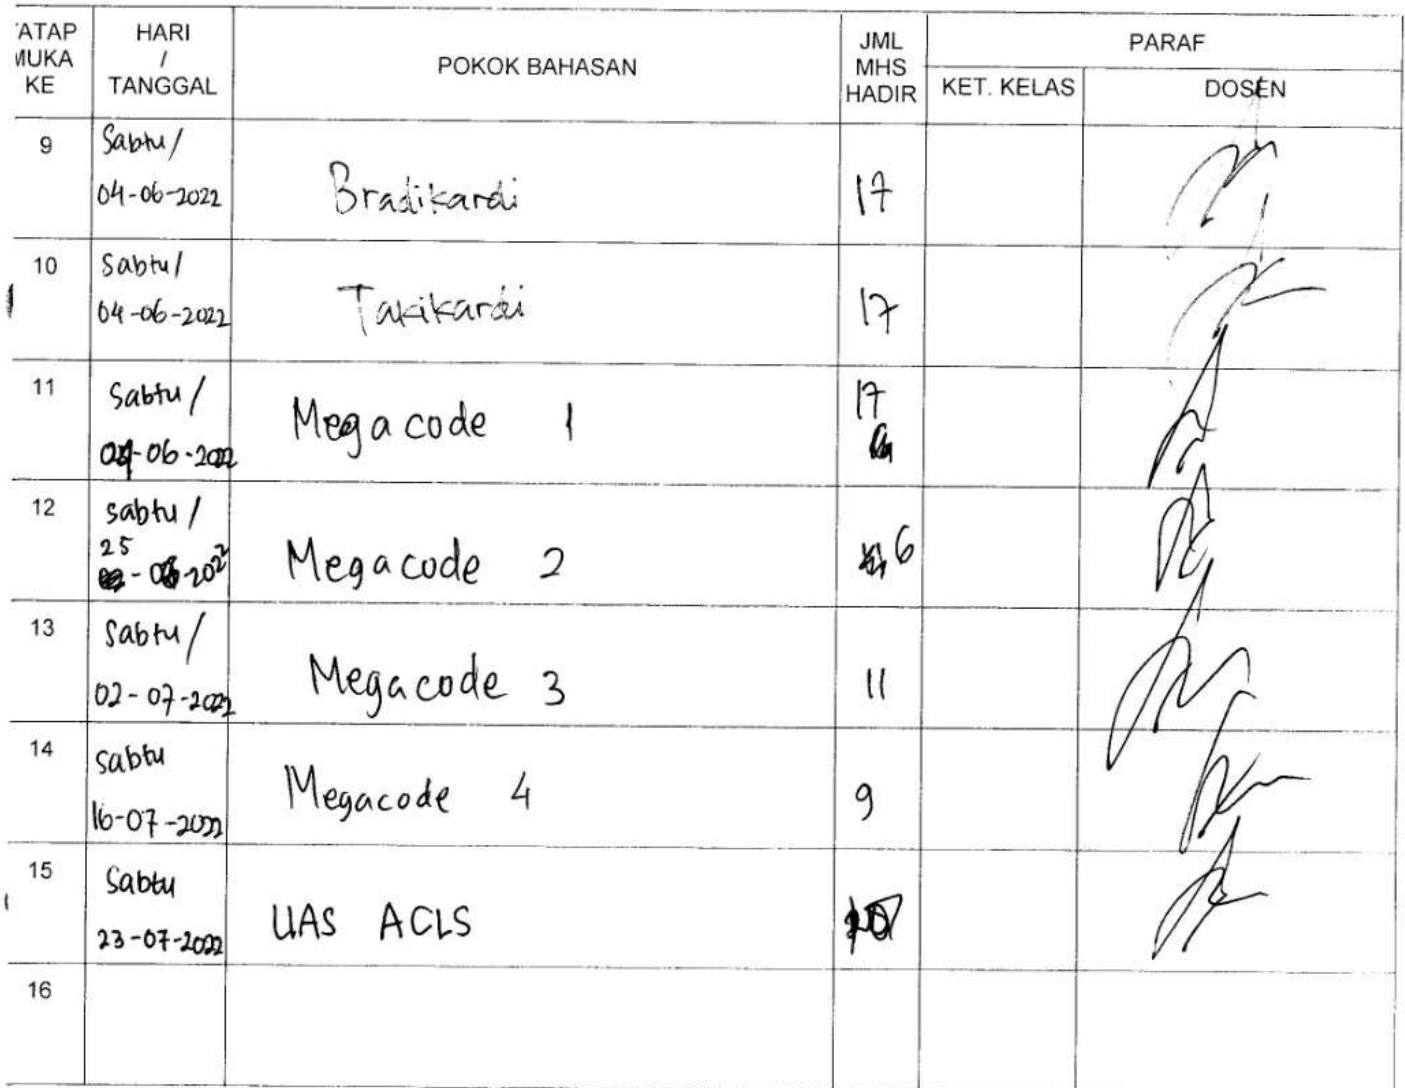 ATAP MUKA KE
HARI / TANGGAL
POKOK BAHASAN
JML MHS HADIR
PARAF
KET. KELAS
DOSEN
9
Sabtu/
04-06-2022
Bradikardi
17
10
Sabtu/
04-06-2022
Takikardi
17
11
Sabtu/
04-06-2022
Megacode 1
17
12
Sabtu/
25
-06-2022
Megacode 2
6
13
Sabtu/
02-07-2022
Megacode 3
11
14
Sabtu
16-07-2022
Megacode 4
9
15
Sabtu
23-07-2022
UAS ACLS
16